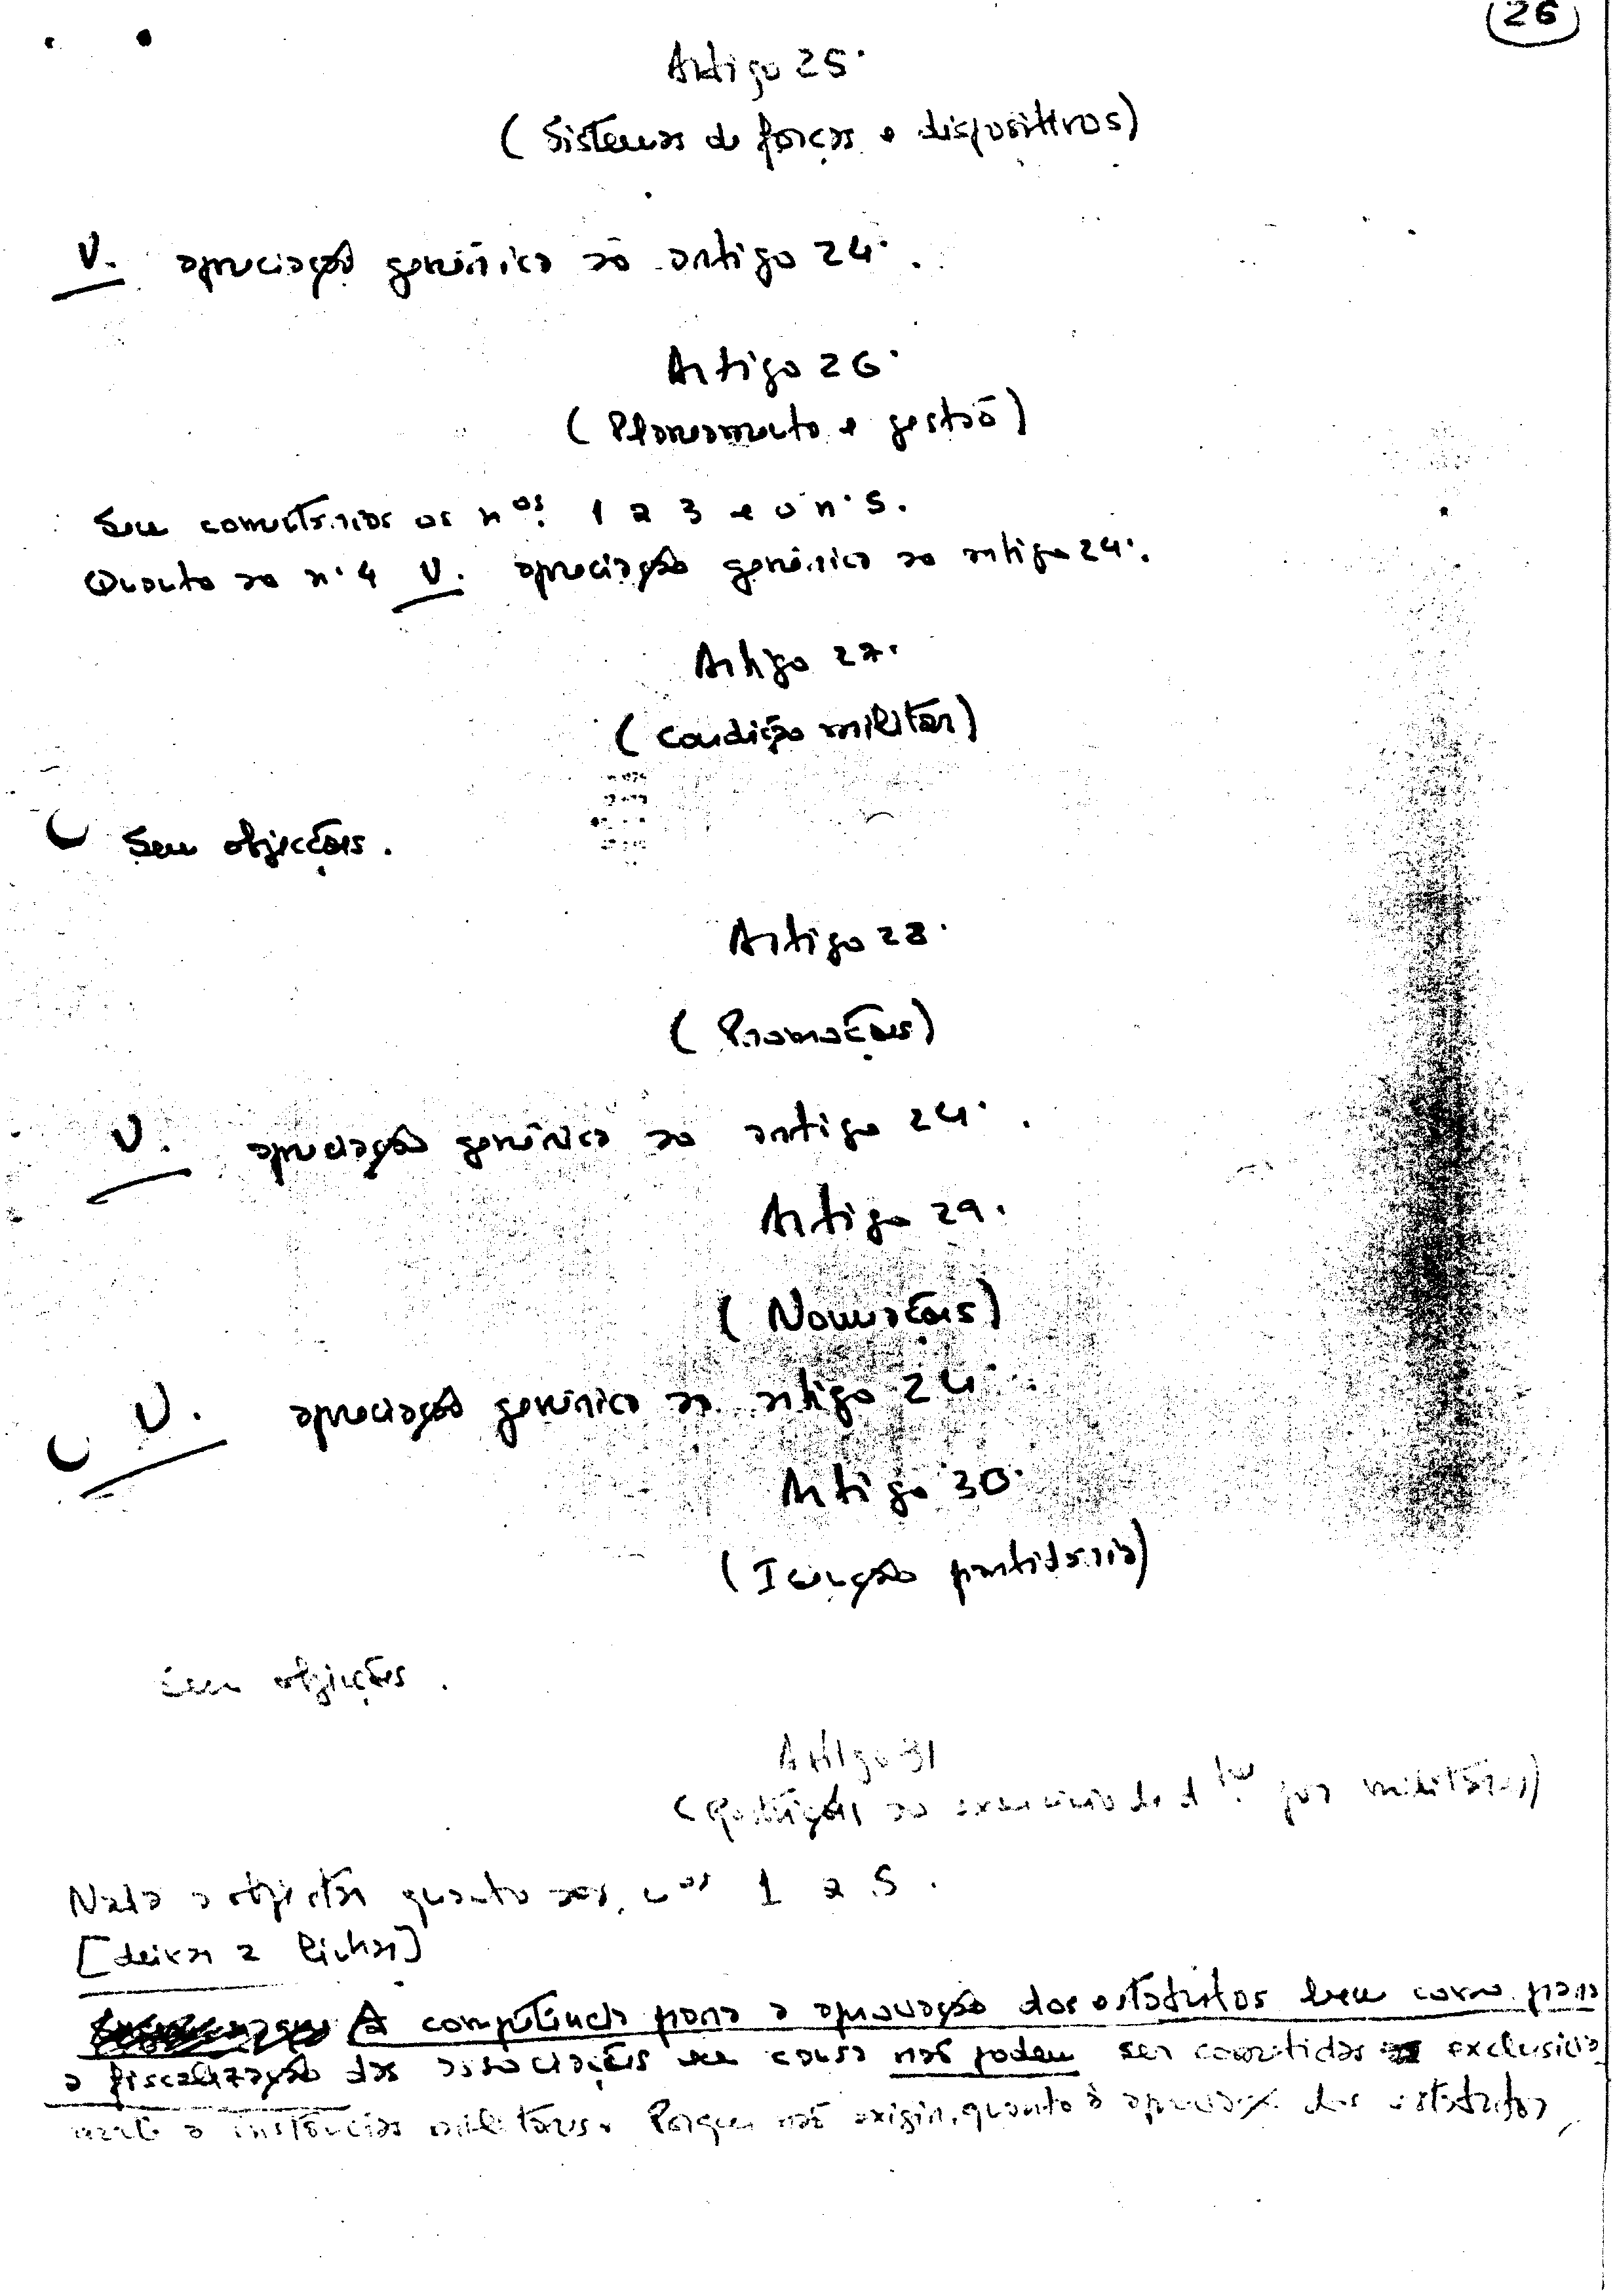 26
Artigo 25.
(Sistemas de forças e dispositivos)
V. apreciação genérica ao artigo 24.
Artigo 26.
(Planeamento e gestão)
Sem comentários os nos. 1 a 3 e o n. 5.
Quanto ao n. 4 V. apreciação genérica ao artigo 24.
Artigo 27.
(Condição militar)
Sem objecções.
Artigo 28.
(Promoções)
V. apreciação genérica ao artigo 24.
Artigo 29.
(Nomeações)
V. apreciação genérica ao artigo 24.
Artigo 30.
(Isenção partidária)
Sem objecções.
Artigo 31
( ao exercício de d.tos por militares)
Nada a objectar quanto aos nos 1 a 5.
[deixar 2 linhas]
A competência para a aprovação dos estatutos bem como para
a fiscalização das associações em causa não podem ser cometidas exclusiva
mente a instâncias militares. Porque não exigir, quanto à aprovação dos estatutos,